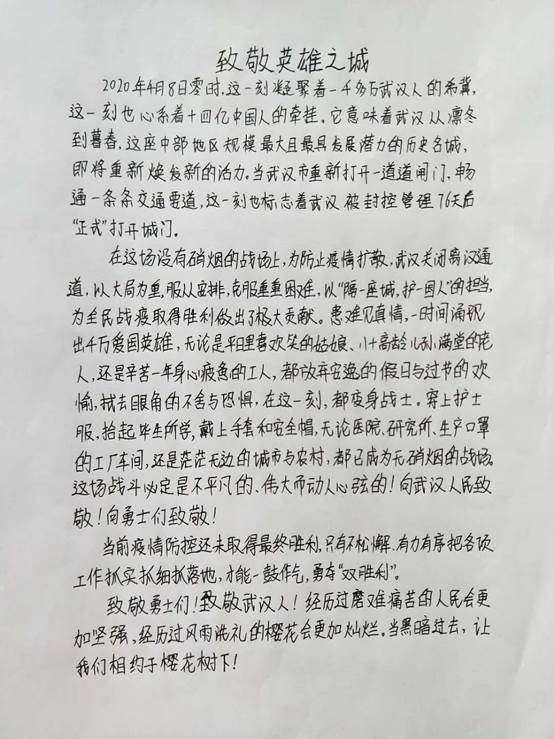 致敬英雄之城
2020年4月8日零时,这一刻凝聚着一千多万武汉人的希冀,
这一刻也心系着十四亿中国人的牵挂。它意味着武汉从凛冬
到暮春,这座中部地区规模最大且最具发展潜力的历史名城,
即将重新焕发新的活力。当武汉市重新打开一道道闸门,畅
通一条条交通要道,这一刻也标志着武汉被封控管理76天后
“正式”打开城门。
在这场没有硝烟的战场上,为防止疫情扩散,武汉关闭离汉通
道,以大局为重,服从安排,克服重重困难,以“隔一座城,护一国人”的担当,
为全民战疫取得胜利做出了极大贡献。患难见真情,一时间涌现
出千万爱国英雄,无论是平日里喜欢笑的姑娘、八十高龄儿孙满堂的老
人,还是辛苦一年身心疲惫的工人,都放弃安逸的假日与过节的欢
愉,拭去眼角的不舍与恐惧,在这一刻,都变身战士。穿上护士
服、拾起毕生所学,戴上手套和安全帽,无论医院、研究所、生产口罩
的工厂车间,还是茫茫无边的城市与农村,都已成为无硝烟的战场。
这场战斗必定是不平凡的、伟大而动人心弦的!向武汉人民致
敬!向勇士们致敬!
当前疫情防控还未取得最终胜利,只有不松懈、有力有序把各项
工作抓实抓细抓落地,才能一鼓作气,勇夺“双胜利”。
致敬勇士们!致敬武汉人!经历过磨难痛苦的人民会更
加坚强、经历过风雨洗礼的樱花会更加灿烂。当黑暗过去,让
我们相约于樱花树下!